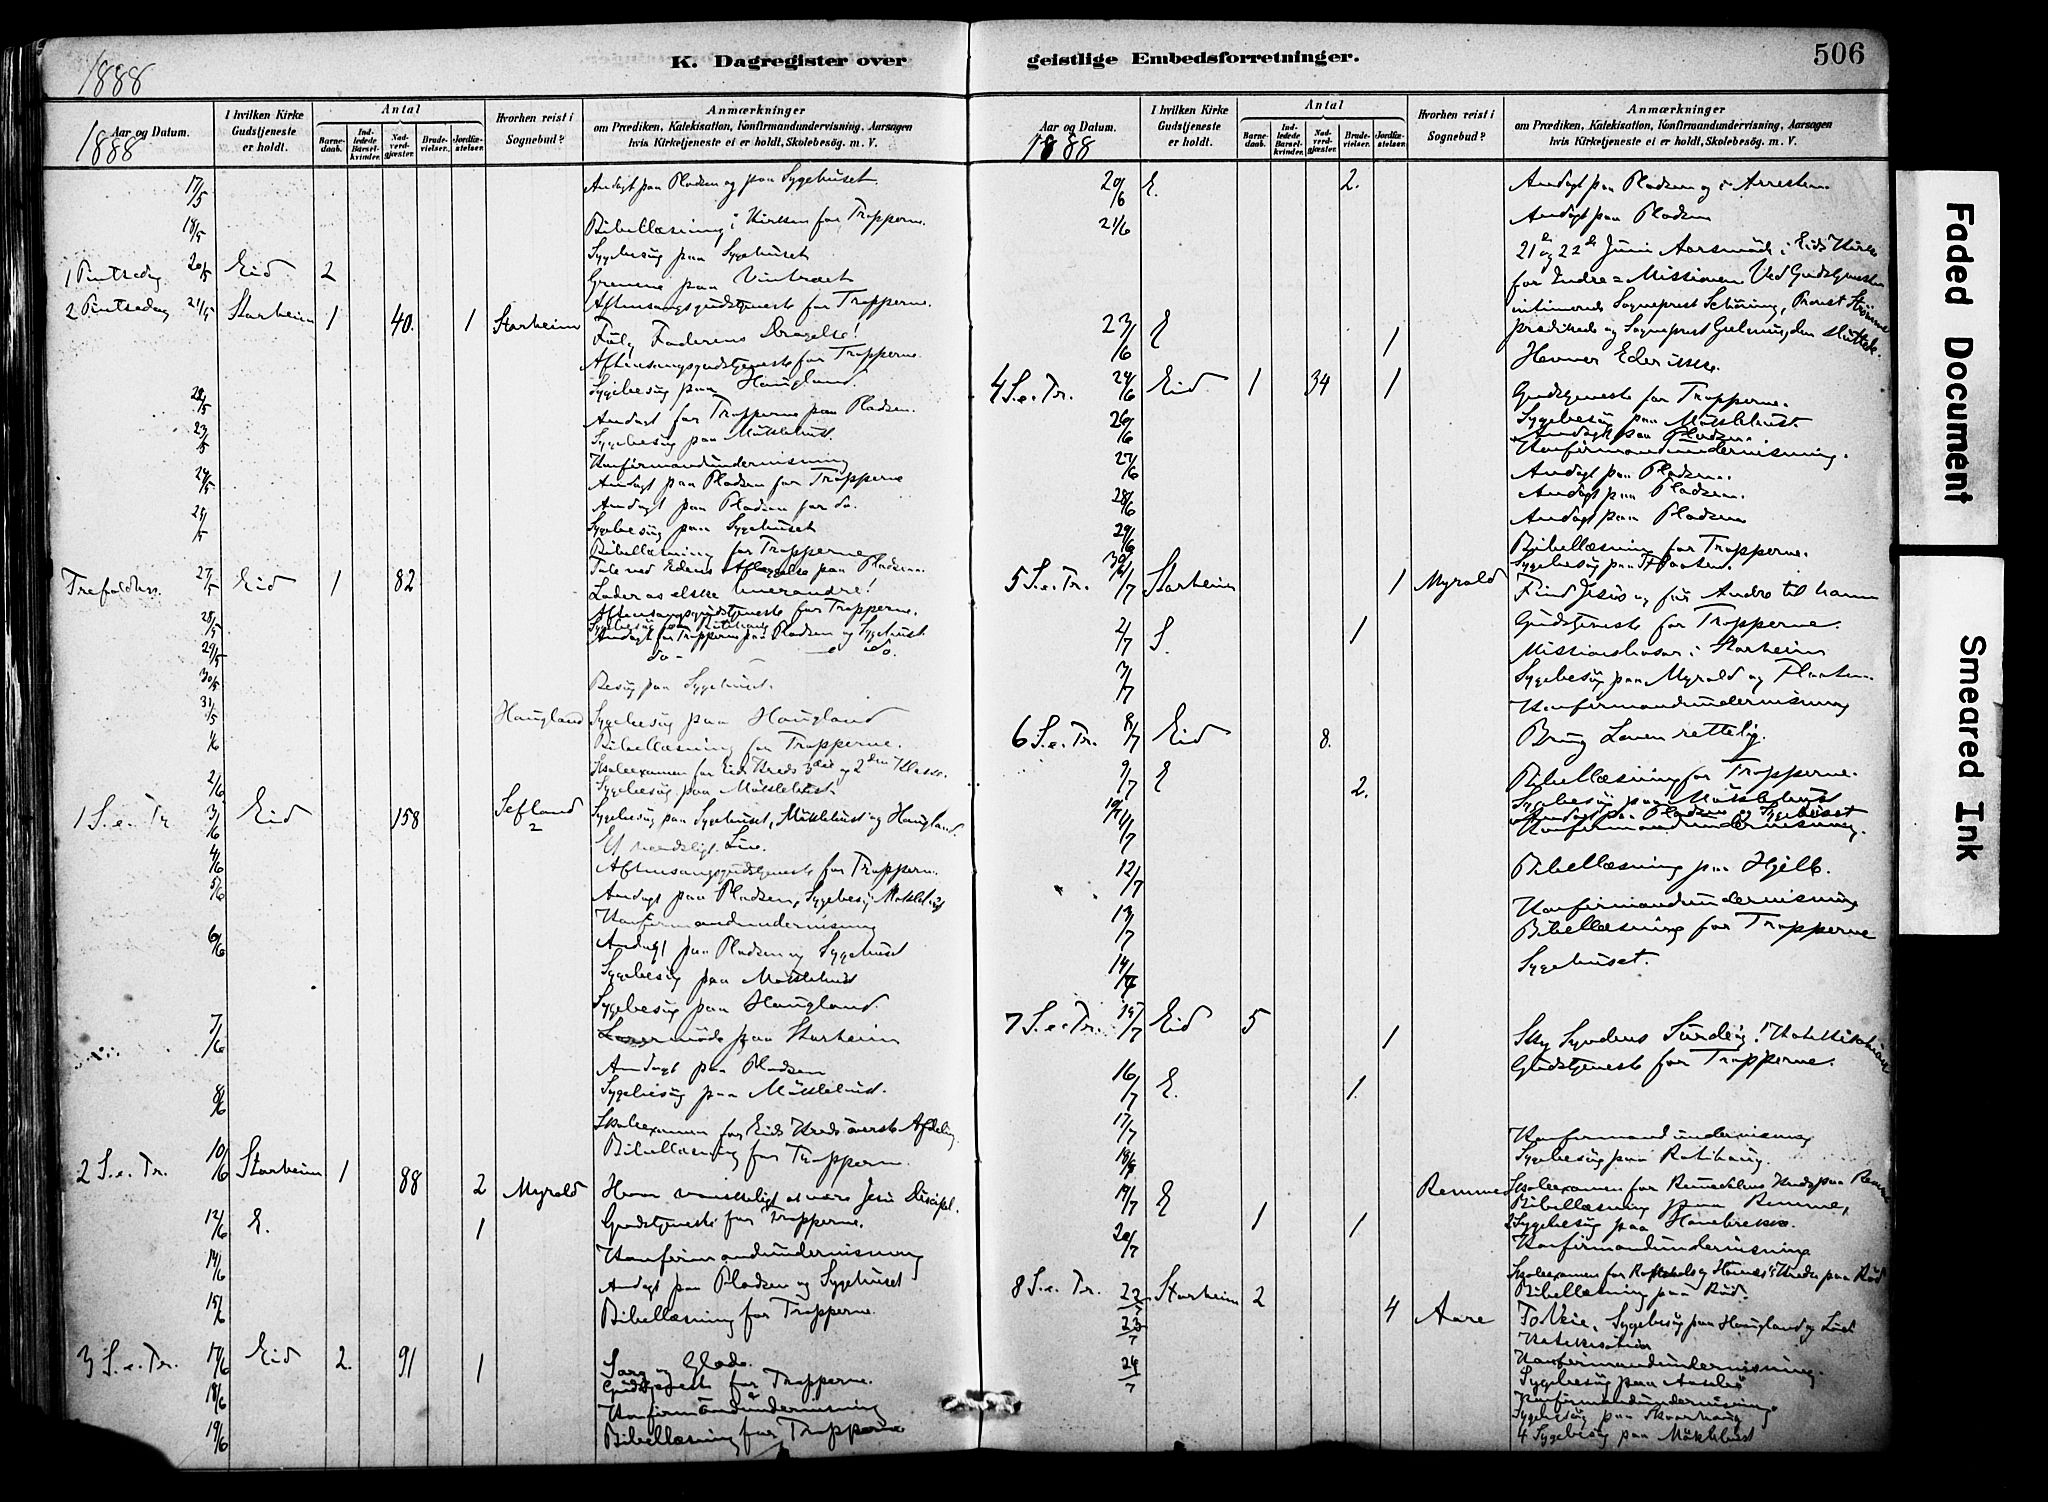 1888
K. Dagregister over
Aar og Datum.
1888
I hvilken Kirke Gudstjeneste er holdt.
Antal
Barnedaab.
Indledede Barselkvinder.
Nadverdgjæster.
Brudevielser.
Jordfæstelser.
Hvorhen reist i Sognebud?
Anmærkninger
om Prædiken, Katekisation, Konfirmandundervisning, Aarsagen
hvis Kirketjeneste ei er holdt, Skolebesøg. m. V.
17/5 Andagt paa Pladsen og paa Sygehuset.
18/5 Bibellæsning i Kirken for Tropperne.
Sygebesøg paa Sygehuset
1 Pintsedag 20/5 Eid 2 Grenene paa Vintræet
Aftensangsgudstjeneste for Tropperne.
2 Pintsedag 21/5 Starheim 1 40. 1 Starheim Faderens Dragelse!
Aftensangsgudstjeneste for Tropperne.
Sygebesøg paa Haugland.
22/5 Andagt for Tropperne paa Pladsen.
23/5 Sygebesøg paa Möklebust.
Konfirmandundervisning
24/5 Andagt paa Pladsen for Tropperne
Andagt paa Pladsen for do.
Sygebesøg paa Sygehuset
Bibellæsning for Tropperne
Tale ved Edens Aflæggelse paa Pladsen.
Trefoldhs. 27/5 Eid 1 82 Lader os elske hverandre!
Aftensangsgudstjeneste for Tropperne.
28/5 Andagt for Tropperne paa Pladsen og Sygehuset
29/5 do - - do.
30/5 Besøg paa Sygehuset.
31/5 Haugland Sygebesøg paa Haugland
1/6 Bibellæsning for Tropperne.
Skoleexamen for Eids Kreds 3die og 2den Klasse.
2/6 Sygebesøg paa Möklebust.
1 S. e. Tr 3/6 Eid 158 Sefland 2 Sygebesøg paa Sygehuset, Möklebust og Haugland.
Et Liv.
4/6 Aftensangsgudstjeneste for Tropperne.
5/6 Andagt paa Pladsen, Sygebesøg Möklebust
Konfirmandundervisning
6/6 Andagt paa Pladsen og Sygehuset
Sygebesøg paa Möklebust
Sygebesøg paa Haugland.
7/6 paa Starheim
Andagt paa Pladsen
Sygebesøg paa Möklebust.
8/6 Skoleexamen for Eids Kreds överste Afdeling
Bibellæsning for Tropperne.
2 S. e. Tr. 10/6 Starheim 1 88 2 Myrold Hvor vanskeligt at være Jesu Discipel.
Gudstjeneste for Tropperne.
12/6 E. 1 Konfirmandundervisning
14/6 Andagt paa Pladsen og Sygehuset
15/6 Bibellæsning for Tropperne.
3 S. e. Tr. 17/6 Eid 2. 91 1 Sorg og Glæde.
Gudstjeneste for Tropperne.
18/6 Konfirmandundervisning
19/6 Bibellæsning for Tropperne
geistlige Embedsforretninger.
506
Aar og Datum.
1888
I hvilken Kirke Gudstjeneste er holdt.
Antal
Barnedaab.
Indledede Barselkvinder.
Nadverdgjæster.
Brudevielser.
Jordfæstelser.
Hvorhen reist i Sognebud?
Anmærkninger
om Prædiken, Katekisation, Konfirmandundervisning, Aarsagen
hvis Kirketjeneste ei er holdt, Skolebesøg. m. V.
20/6 E. 2. Andagt paa Pladsen og i Arresten.
21/6 Andagt paa Pladsen
21de og 22de Juni Aarsmöde i Eids Kirke
for Indre=Missionen Ved Gudstjenesten
intimerede Sogneprest Schöning, Provst Strömme
23/6 E 1 prædikede og Sogneprest sluttede.
Hevner Eder ikke.
4 S. e. Tr. 24/6 Eid. 1 34 1 Gudstjeneste for Tropperne.
26/6 Sygebesøg paa Möklebust.
Andagt paa Pladsen.
Konfirmandundervisning.
27/6 Andagt paa Pladsen.
28/6 Andagt paa Pladsen.
29/6 Andagt paa Pladsen
30/6 Bibellæsning for Tropperne.
Sygebesøg paa
5 S. e. Tr. 1/7 Starheim 1 Myrold Find Jesus og før Andre til ham
Gudstjeneste for Tropperne.
2/7 S. 1 i Starheim
3/7 Sygebesøg paa Myrold og
Konfirmandundervisning
6 S. e. Tr. 8/7 Eid 8. Brug Loven rettelig.
9/7 E 2. Bibellæsning for Tropperne.
10/7 Sygebesøg paa Möklebust
Andagt paa Pladsen og Sygehuset
11/7 Konfirmandundervisning.
12/7 Bibellæsning paa Hjelle.
13/7 Konfirmandundervisning
Bibellæsning for Tropperne
14/7 Sygehuset.
7 S. e. Tr. 15/7 Eid 5 1 Sky Syndens Surdeig! Katekisation
Gudstjeneste for Tropperne.
16/7 E. 1.
17/7 Konfirmandundervisning
18/7 Sygebesøg paa
19/7 E 1 1 Remme Skoleexamen for Kreds paa Remme
Bibellæsning paa Remme,
2 Sygebesøg paa
20/7 Konfirmandundervisning
Skoleexamen for
Bibellæsning paa
8 S. e. Tr. 22/7 Starheim 2 4 Aare Sygebesøg paa Haugland og
23/7 Katekisation
Konfirmandundervisning.
24/7 Sygebesøg paa
Konfirmandundervisning.
Sygebesøg paa
4 Sygebesøg paa Möklebust
Faded Document
Smeared Ink